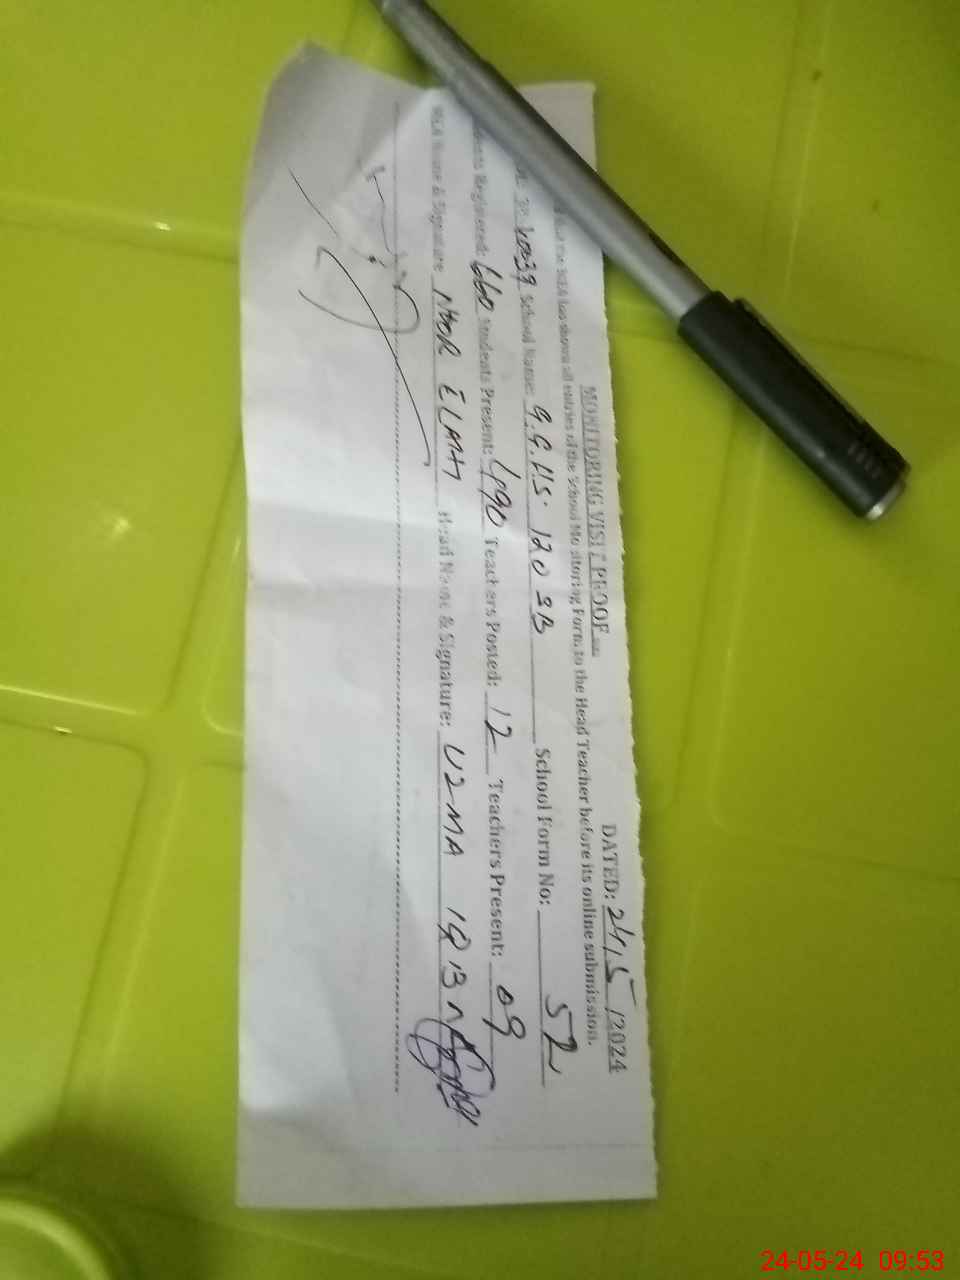 MONITORING VISIT PROOF
DATED: 24/5/2024
has shown all entries of the School Monitoring Form to the Head Teacher before its online submission.
School Name: G.G.HS. 120 SB School Form No: 52
Registered: 660 Students Present: 490 Teachers Posted: 12 Teachers Present: 09
Name & Signature NOOR ELAHI Head Name & Signature: UZMA IQBAL
24-05-24 09:53